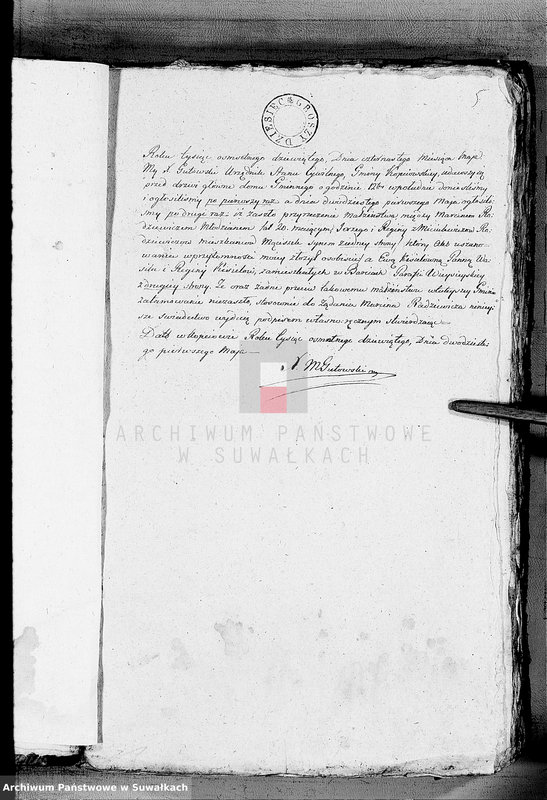 5
DZIESIĘĆ GROSZY
Roku tysiąc osmsetnego dziewiątego, Dnia czternastego Miesiąca Maja
My X. Gutowski Urzędnik Stanu Cywilnego, Gminy Kopciowskiej,
przed drzwi główne domu Gminnego o godzinie 12tej w południe
i ogłosiliśmy po pierwszy raz a dnia dwudziestego pierwszego Maja ogłosili-
śmy po drugi raz iż zaszło przyrzeczenie małżeństwa między Marcinem Ra-
dziewiczem Młodzianem lat 20. maiącym Jerzego i Reginy z Ra-
dziewiczow mieszkancow synem z iedney strony, który Akt uszano-
wania w przytomności moiey złożył osobiście, a Ewą Kisielowną Panną
i Reginy Kisielow, zamieszkałych w Parafii Wieysieyskiey
z drugiey strony. Że oraz żadne przeciw takowemu małżeństwu w tuteyszey Gminie
zatamowanie niezaszło, stosownie do żądania Marcina Radziewicza niniey-
sze świadectwo wydaię podpisem własno ręcznym stwierdzaiąc
Datt w Kopciowie Roku tysiąc osmsetnego dziewiątego, Dnia dwudzieste-
go pierwszego Maja
X. M Gutowski
ARCHIWUM PAŃSTWOWE
W SUWAŁKACH
Archiwum Państwowe w Suwałkach